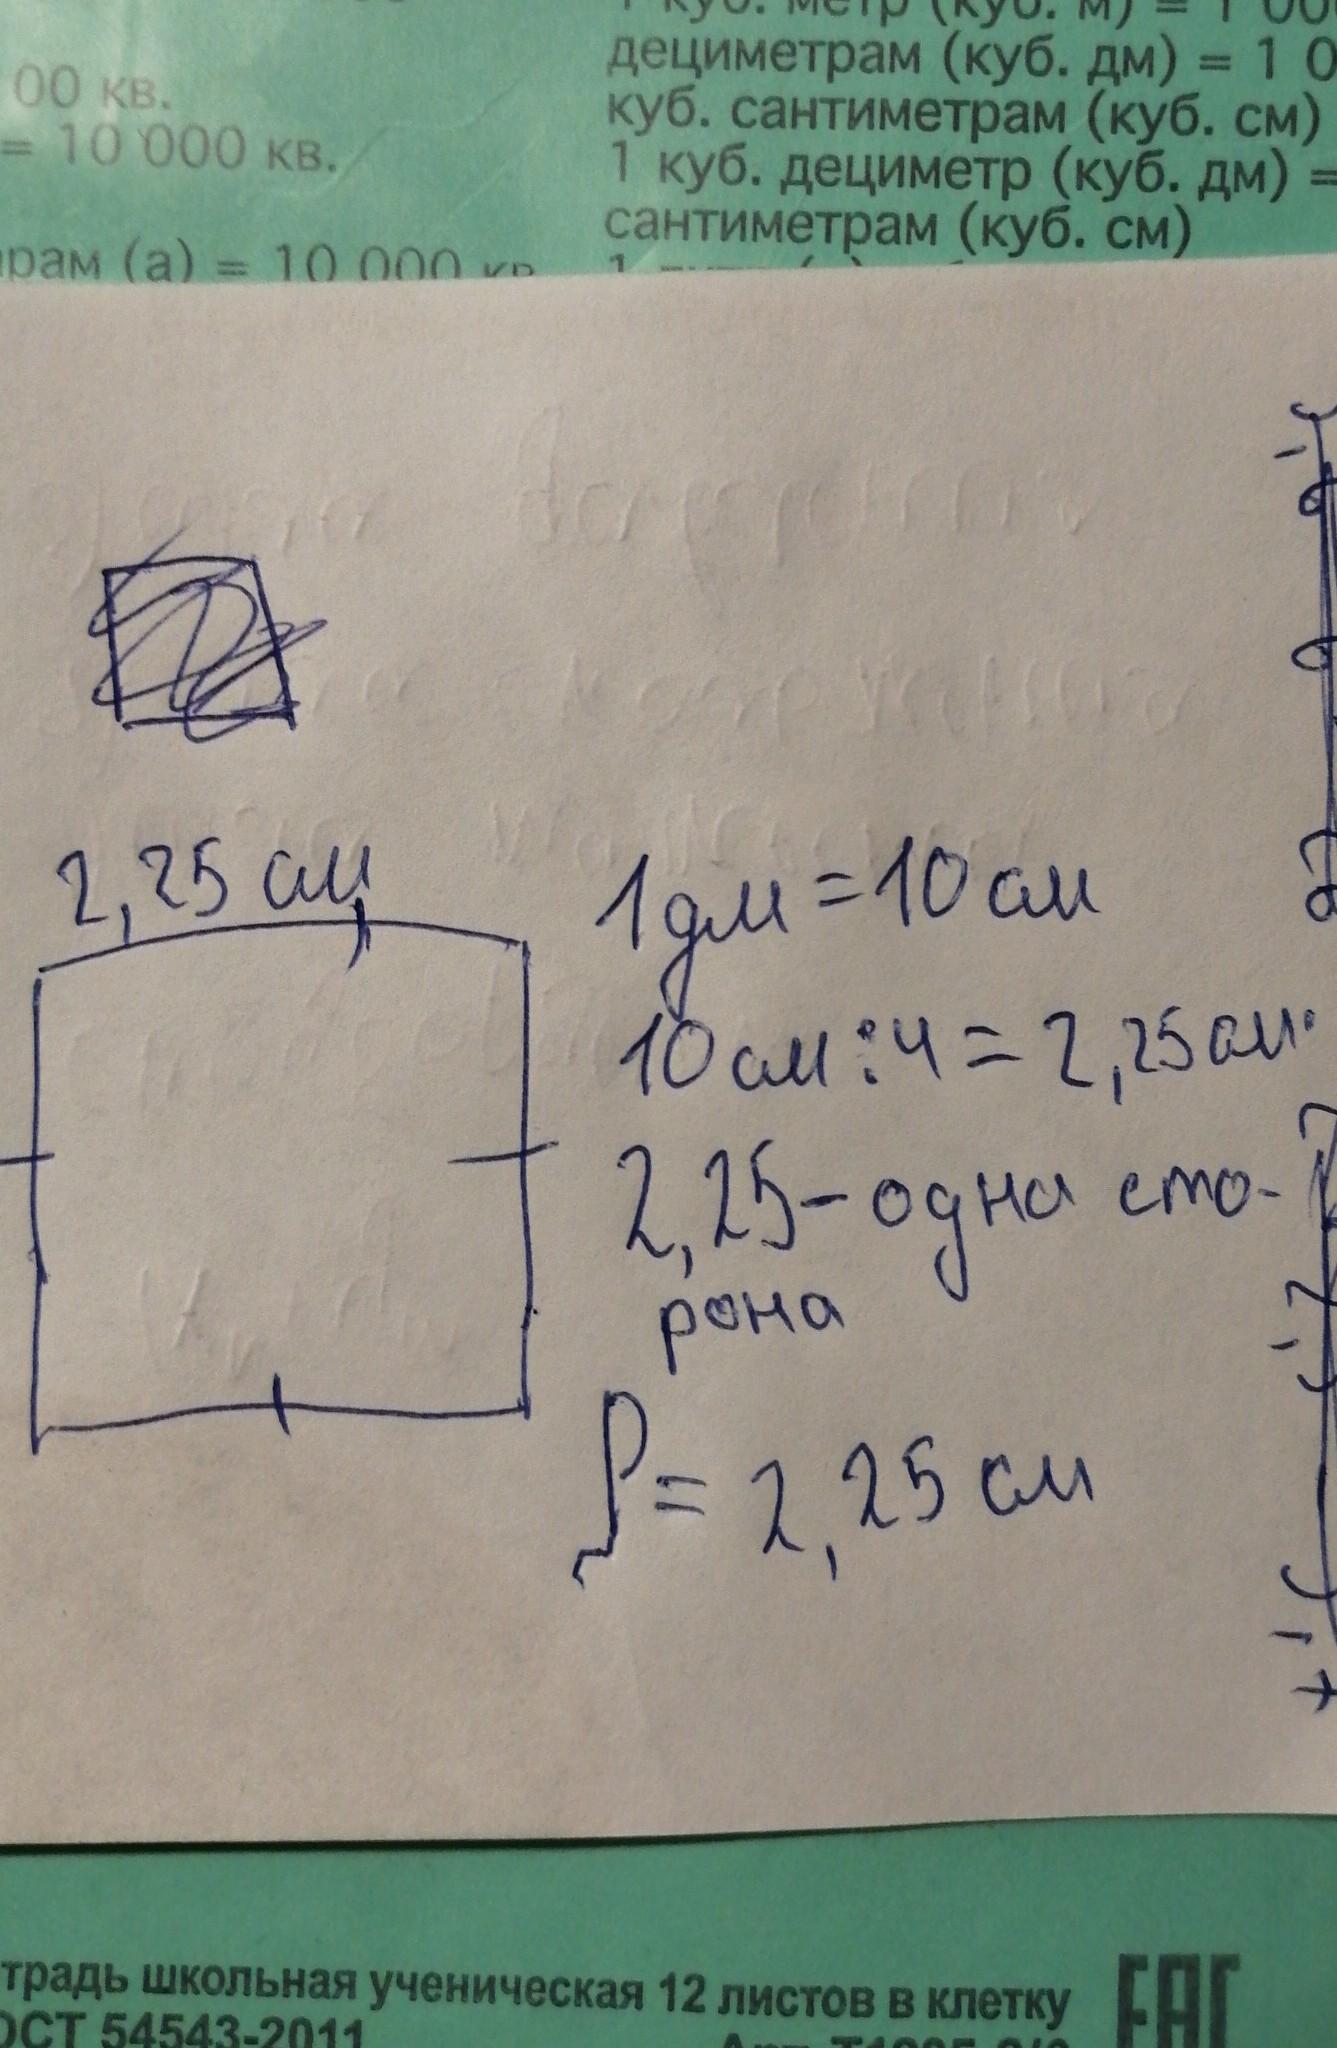 00 кв.
= 10 000 кв.
(а) = 10 000 кв
1 куб. метр (куб. м) = 1 00
дециметрам (куб. дм) = 1 0
куб. сантиметрам (куб. см)
1 куб. дециметр (куб. дм) =
сантиметрам (куб. см)
2,25 см
1 дм = 10 см
10 см : 4 = 2,25 см.
2,25 - одна сто-
рона
P = 2,25 см
традь школьная ученическая 12 листов в клетку
ОСТ 54543-2011
EAC